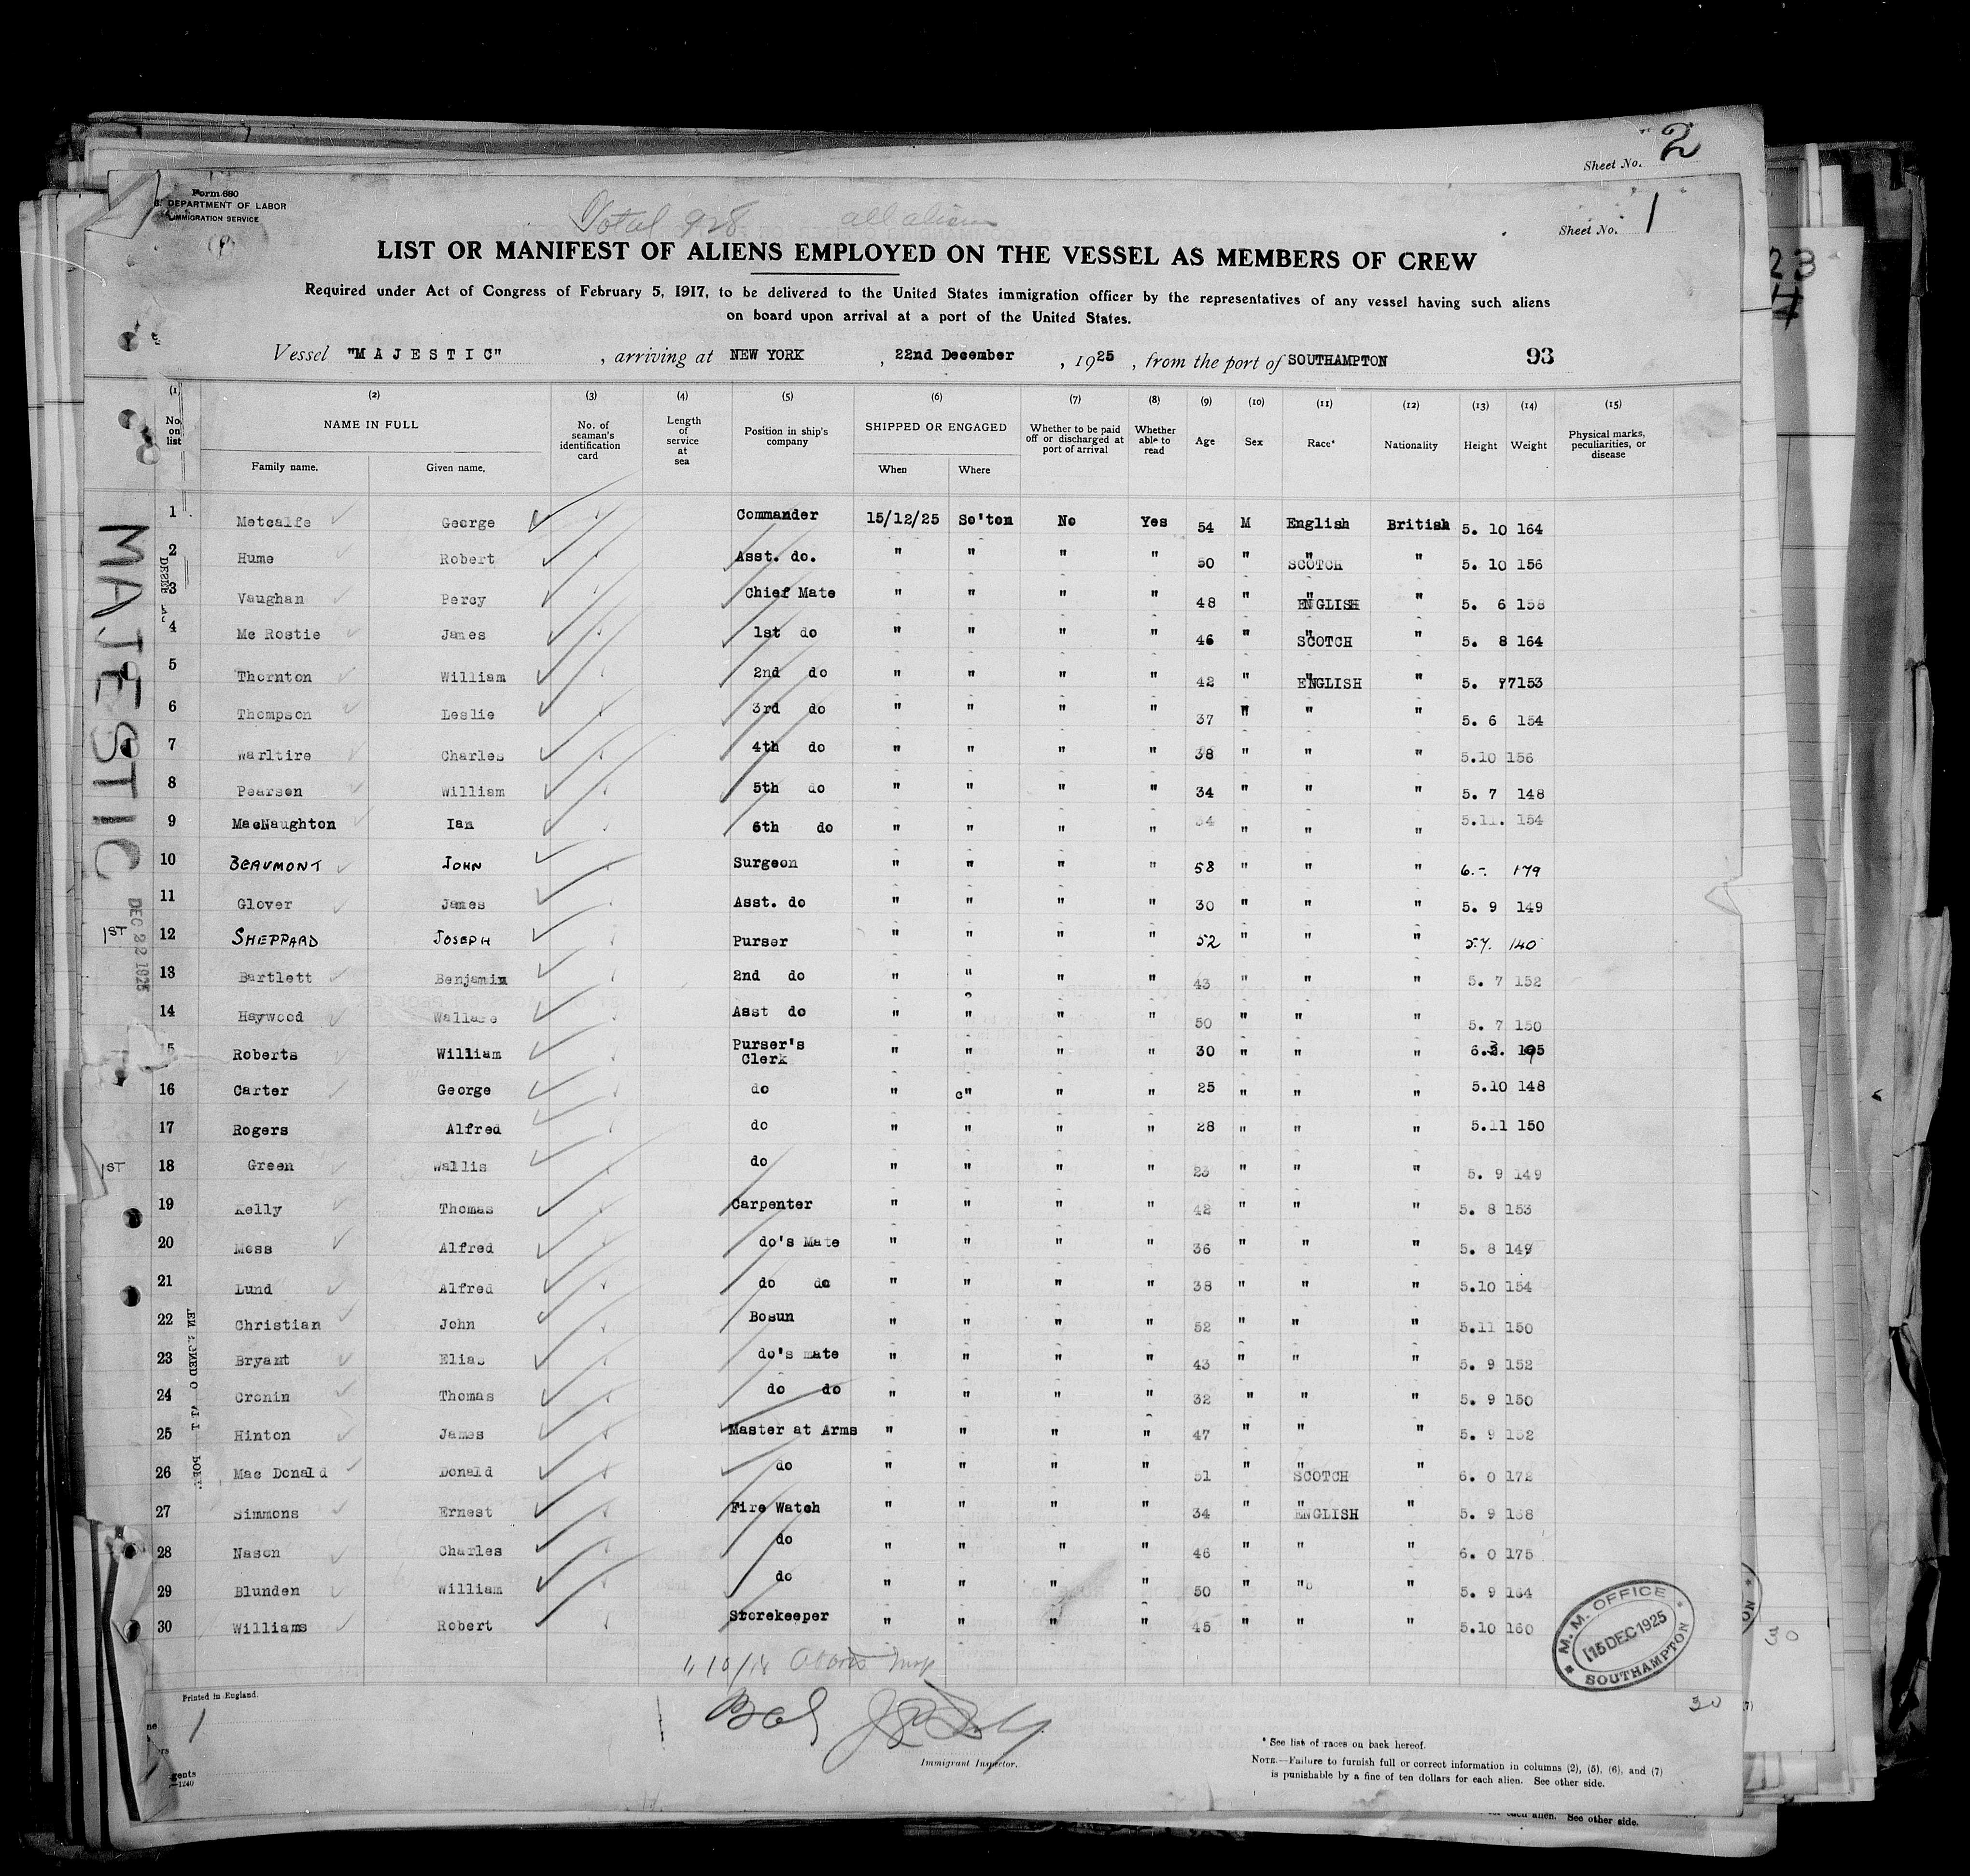 Sheet No. 2
Form 680
DEPARTMENT OF LABOR
IMMIGRATION SERVICE
Total 928 all aliens
Sheet No. 1
LIST OR MANIFEST OF ALIENS EMPLOYED ON THE VESSEL AS MEMBERS OF CREW
Required under Act of Congress of February 5, 1917, to be delivered to the United States immigration officer by the representatives of any vessel having such aliens
on board upon arrival at a port of the United States.
Vessel "MAJESTIC" , arriving at NEW YORK , 22nd December , 1925 , from the port of SOUTHAMPTON 93
(1) (2) (3) (4) (5) (6) (7) (8) (9) (10) (11) (12) (13) (14) (15)
No. on list NAME IN FULL Family name. Given name. No. of seaman's identification card Length of service at sea Position in ship's company SHIPPED OR ENGAGED When Where Whether to be paid off or discharged at port of arrival Whether able to read Age Sex Race* Nationality Height Weight Physical marks, peculiarities, or disease
1 Metcalfe George Commander 15/12/25 So'ton No Yes 54 M English British 5. 10 164
2 Hume Robert Asst. do. " " " " 50 " SCOTCH " 5. 10 156
3 Vaughan Percy Chief Mate " " " " 48 " ENGLISH " 5. 6 158
4 Mc Rostie James 1st do " " " " 46 " SCOTCH " 5. 8 164
5 Thornton William 2nd do " " " " 42 " ENGLISH " 5. 7 153
6 Thompson Leslie 3rd do " " " " 37 " " " 5. 6 154
7 Warltire Charles 4th do " " " " 38 " " " 5.10 156
8 Pearson William 5th do " " " " 34 " " " 5. 7 148
9 MacNaughton Ian 6th do " " " " 34 " " " 5.11. 154
10 BEAUMONT JOHN Surgeon " " " " 58 " " " 6.-. 179
11 Glover James Asst. do " " " " 30 " " " 5. 9 149
1ST 12 SHEPPARD JOSEPH Purser " " " " 52 " " " 5.7. 140
13 Bartlett Benjamin 2nd do " " " " 43 " " " 5. 7 152
14 Haywood Wallace Asst do " " " " 50 " " " 5. 7 150
15 Roberts William Purser's Clerk " " " " 30 " " "
16 Carter George do " " " " 25 " " " 5.10 148
17 Rogers Alfred do " " " " 28 " " " 5.11 150
1ST 18 Green Wallis do " " " " 23 " " " 5. 9 149
19 Kelly Thomas Carpenter " " " " 42 " " " 5. 8 153
20 Moss Alfred do's Mate " " " " 36 " " " 5. 8 149
21 Lund Alfred do do " " " " 38 " " " 5.10 154
22 Christian John Bosun " " " " 52 " " " 5.11 150
23 Bryant Elias do's mate " " " " 43 " " " 5. 9 152
24 Cronin Thomas do do " " " " 32 " " " 5. 9 150
25 Hinton James Master at Arms " " " " 47 " " " 5. 9 152
26 Mac Donald Donald do " " " " 51 " SCOTCH " 6. 0 172
27 Simmons Ernest Fire Watch " " " " 34 " ENGLISH " 5. 9 168
28 Nason Charles do " " " " 46 " " " 6. 0 175
29 Blunden William do " " " " 50 " " " 5. 9 164
30 Williams Robert Storekeeper " " " " 45 " " " 5.10 160
MAJESTIC
DEC 22 1925
M. M. OFFICE
15 DEC 1925
SOUTHAMPTON
Printed in England.
30
1
Immigrant Inspector.
* See list of races on back hereof.
NOTE.—Failure to furnish full or correct information in columns (2), (5), (6), and (7)
is punishable by a fine of ten dollars for each alien. See other side.
each alien. See other side.